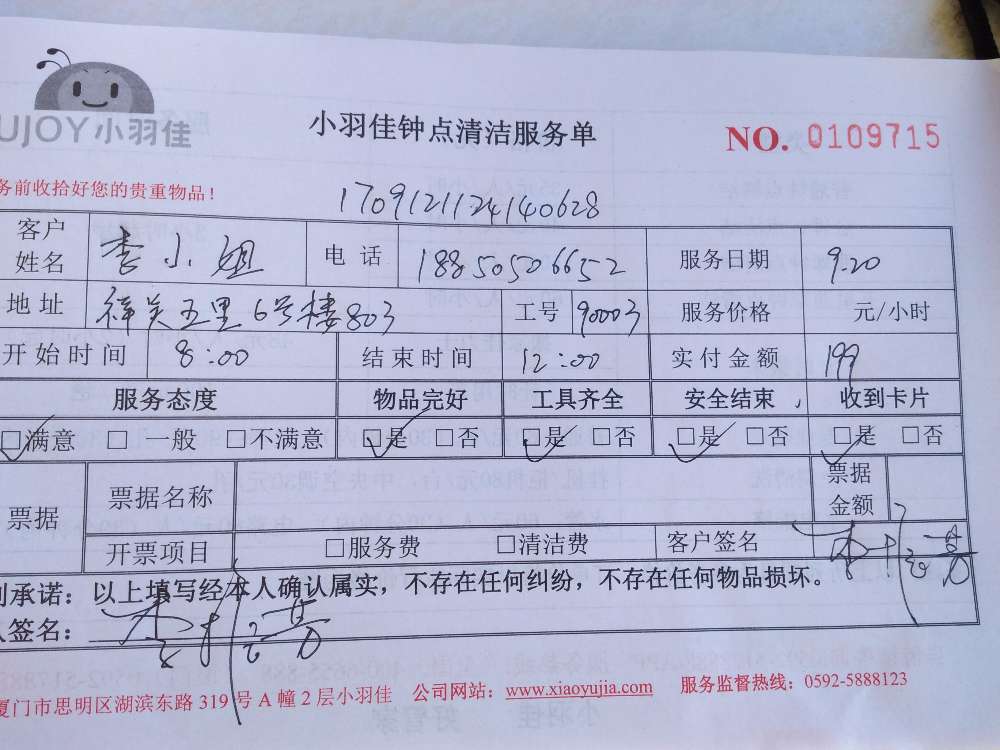 UJOY小羽佳
小羽佳钟点清洁服务单
NO. 0109715
务前收拾好您的贵重物品！
1709121124140628
客户姓名 李小姐 电话 18850506652 服务日期 9.20
地址 祥关五里6号楼803 工号 90003 服务价格 元/小时
开始时间 8:00 结束时间 12:00 实付金额 199
服务态度 物品完好 工具齐全 安全结束 收到卡片
□满意 □一般 □不满意 □是 □否 □是 □否 □是 □否 □是 □否
票据 票据名称 票据金额
开票项目 □服务费 □清洁费 客户签名
承诺：以上填写经本人确认属实，不存在任何纠纷，不存在任何物品损坏。
签名：
厦门市思明区湖滨东路319号A幢2层小羽佳 公司网站：www.xiaoyujia.com 服务监督热线：0592-5888123